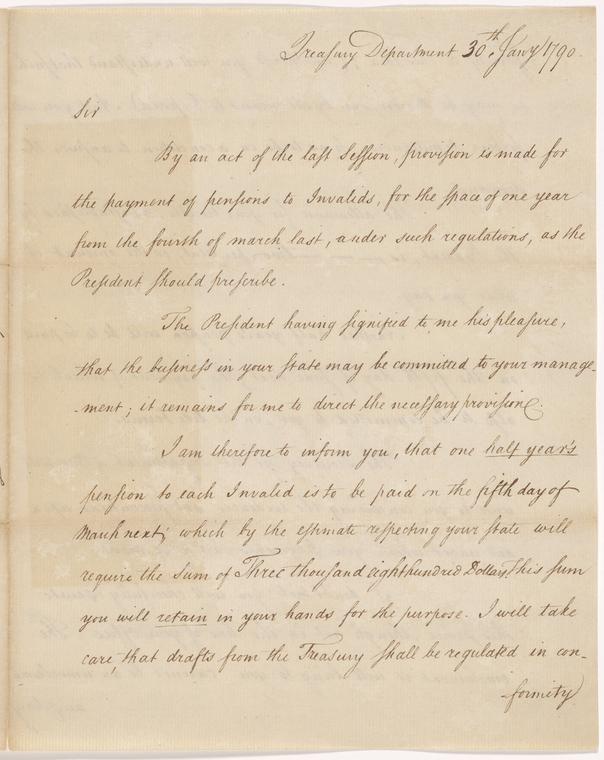 Treasury Department 30.th Jany 1790.
Sir
By an act of the last Session, provision is made for
the payment of pensions to Invalids, for the space of one year
from the fourth of march last, under such regulations, as the
President should prescribe.
The President having signified to me his pleasure,
that the business in your state may be committed to your manage-
-ment; it remains for me to direct the necessary provision.
I am therefore to inform you, that one half year's
pension to each Invalid is to be paid on the fifth day of
March next; which by the estimate respecting your state will
require the Sum of Three thousand eight hundred Dollars. This sum
you will retain in your hands for the purpose. I will take
care, that drafts from the Treasury shall be regulated in con-
-formity